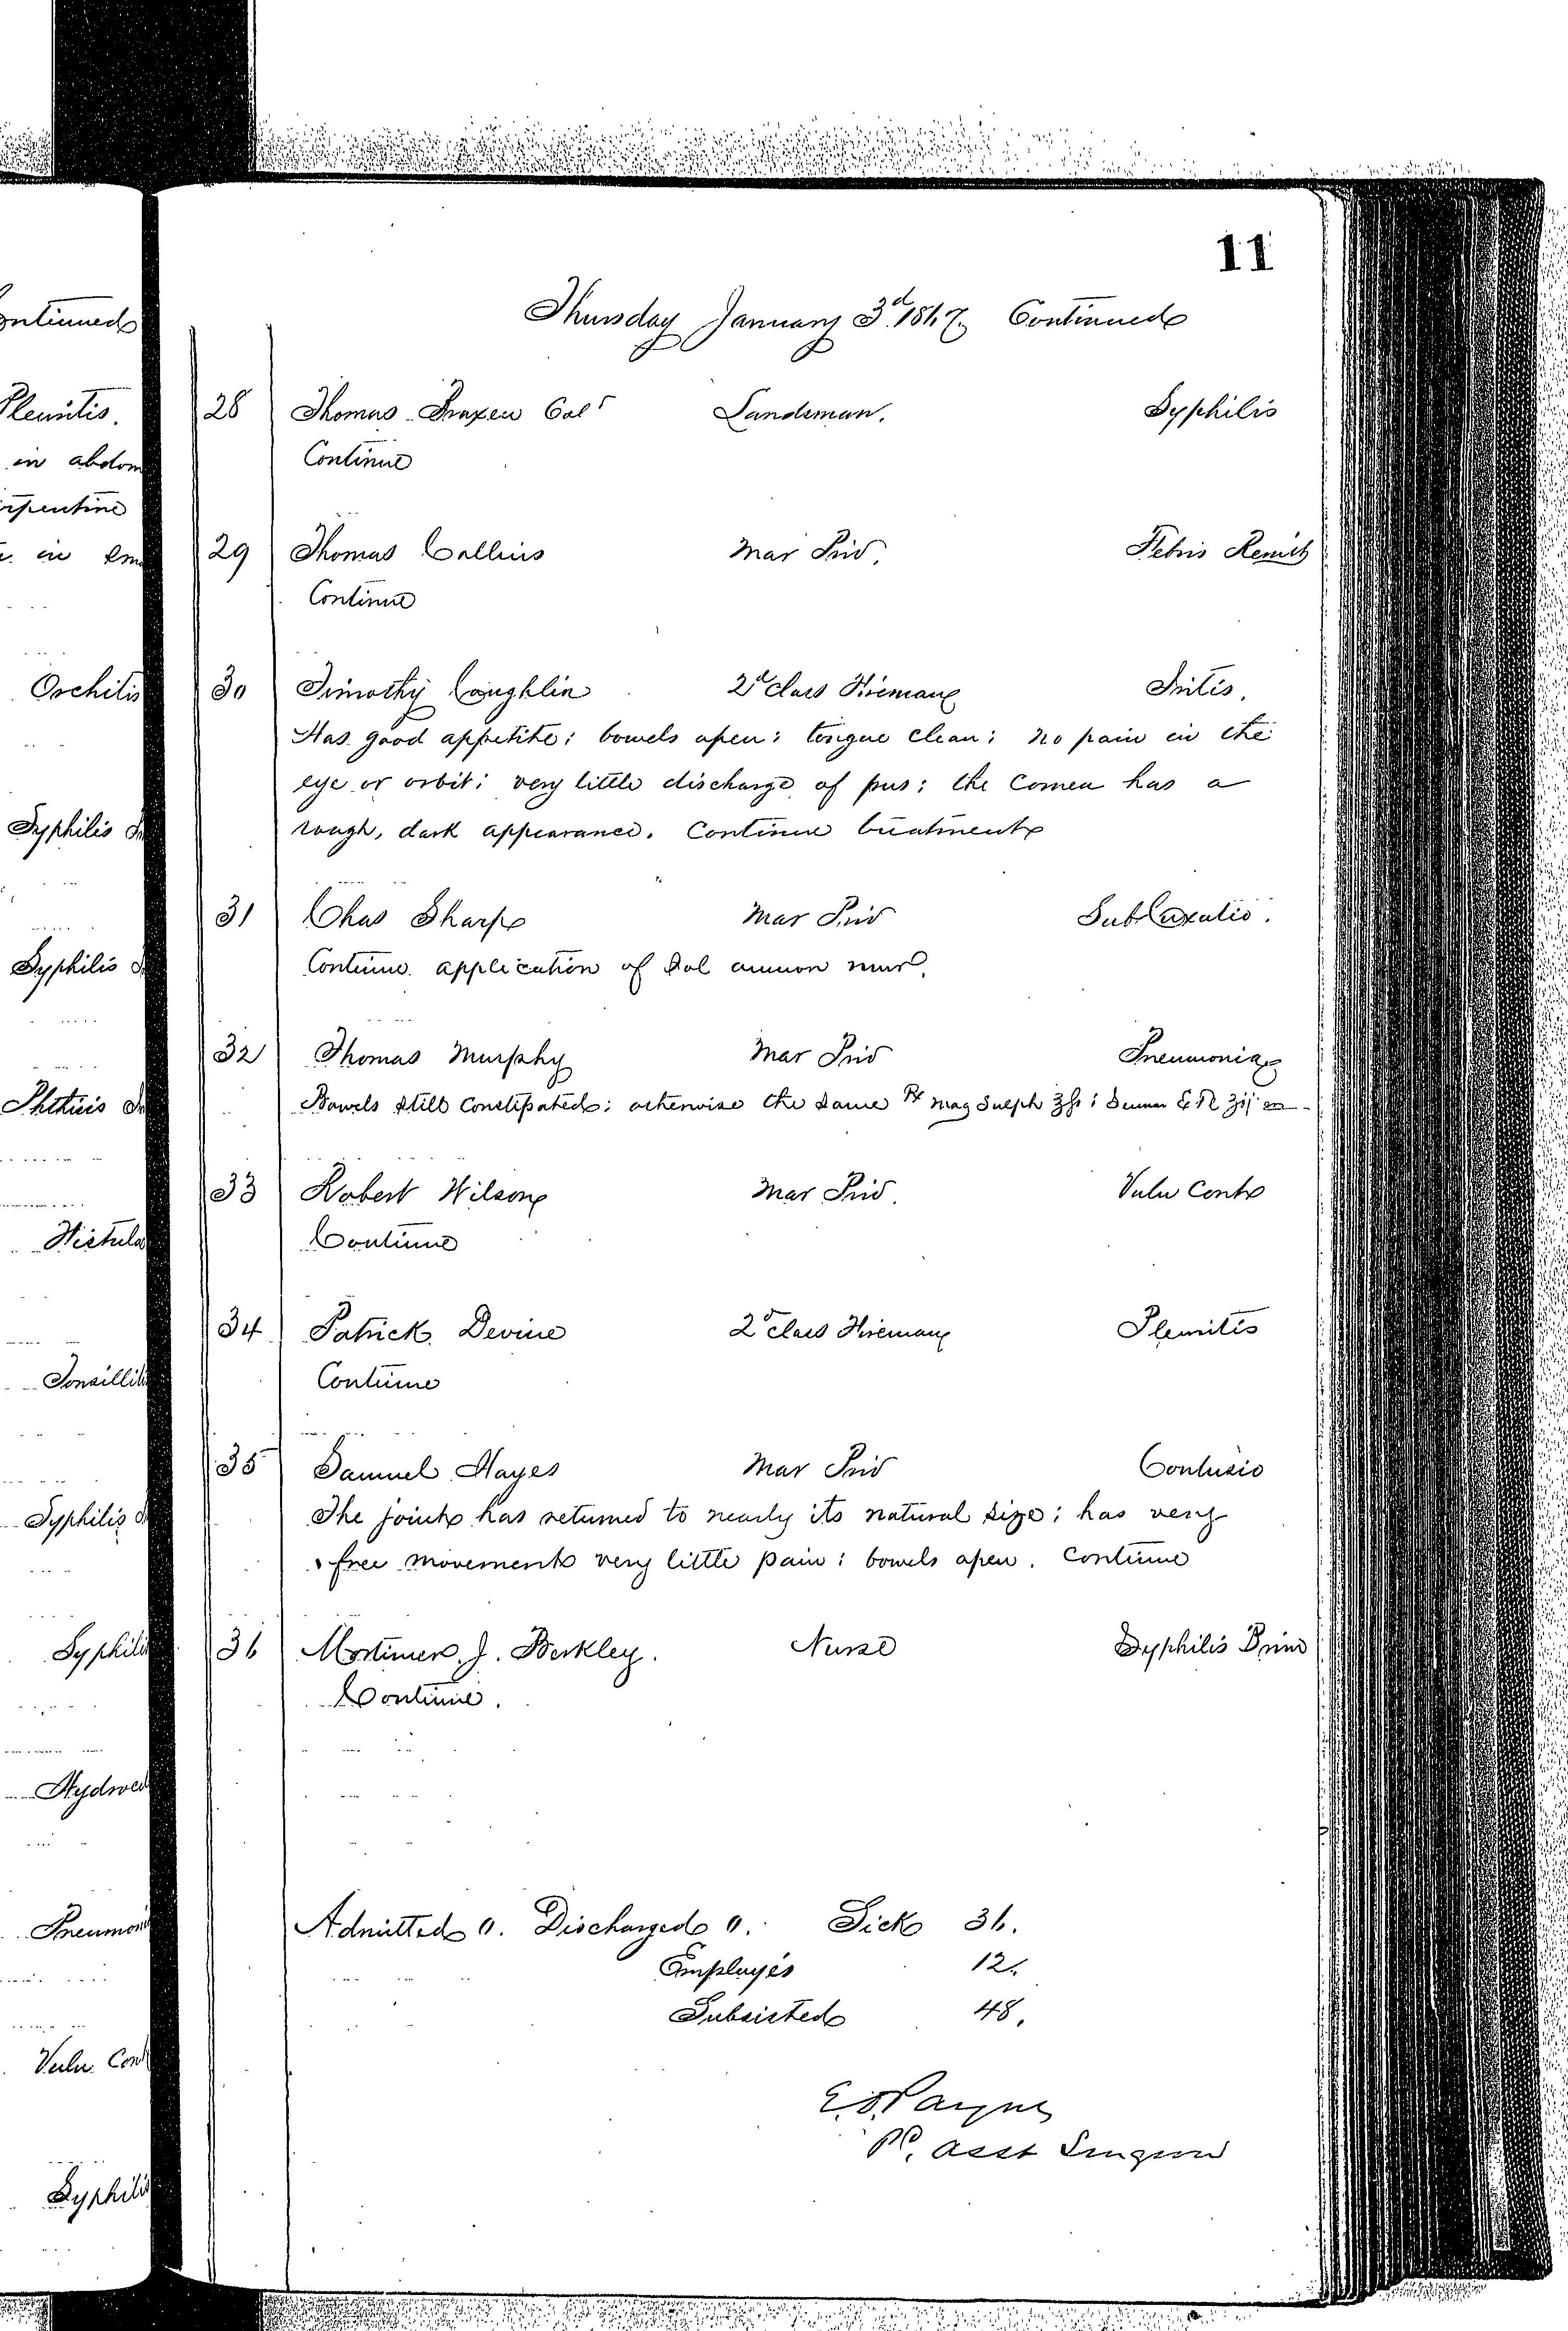 11
Thursday January 3d 1867. Continued
28 Thomas Fraxen Cold Landsman. Syphilis
Continue
29 Thomas Collins Mar Priv. Febris Remitt
Continue
30 Timothy Coughlin 2d Class Fireman Iritis.
Has good appetite; bowels open; tongue clean; no pain in the
eye or orbit; very little discharge of pus; the Cornea has a
rough, dark appearance. Continue treatment
31 Chas Sharp Mar Priv Sub Luxatio.
Continue application of Sol ammon mur.
32 Thomas Murphy Mar Priv Pneumonia
Bowels still Constipated; otherwise the same Rx Mag Sulph ℥ss; Senna
33 Robert Wilson Mar Priv. Vuln Cont
Continue
34 Patrick Devine 2d Class Fireman Pleuritis
Continue
35 Samuel Hayes Mar Priv Contusio
The joint has returned to nearly its natural size; has very
free movement very little pain; bowels open. Continue
36 Mortimer J. Berkley. Nurse Syphilis Prim
Continue.
Admitted 0. Discharged 0. Sick 36.
Employés 12.
Subsisted 48.
E.S. Payne
Pd. Asst Surgeon
ontinued
Pleuritis.
in abdom
rpentine
in em
Orchitis
Syphilis
Syphilis
Phthisis
Fistula
Tonsillit
Syphilis
Syphili
Hydroce
Pneumoni
Vuln Cont
Syphili